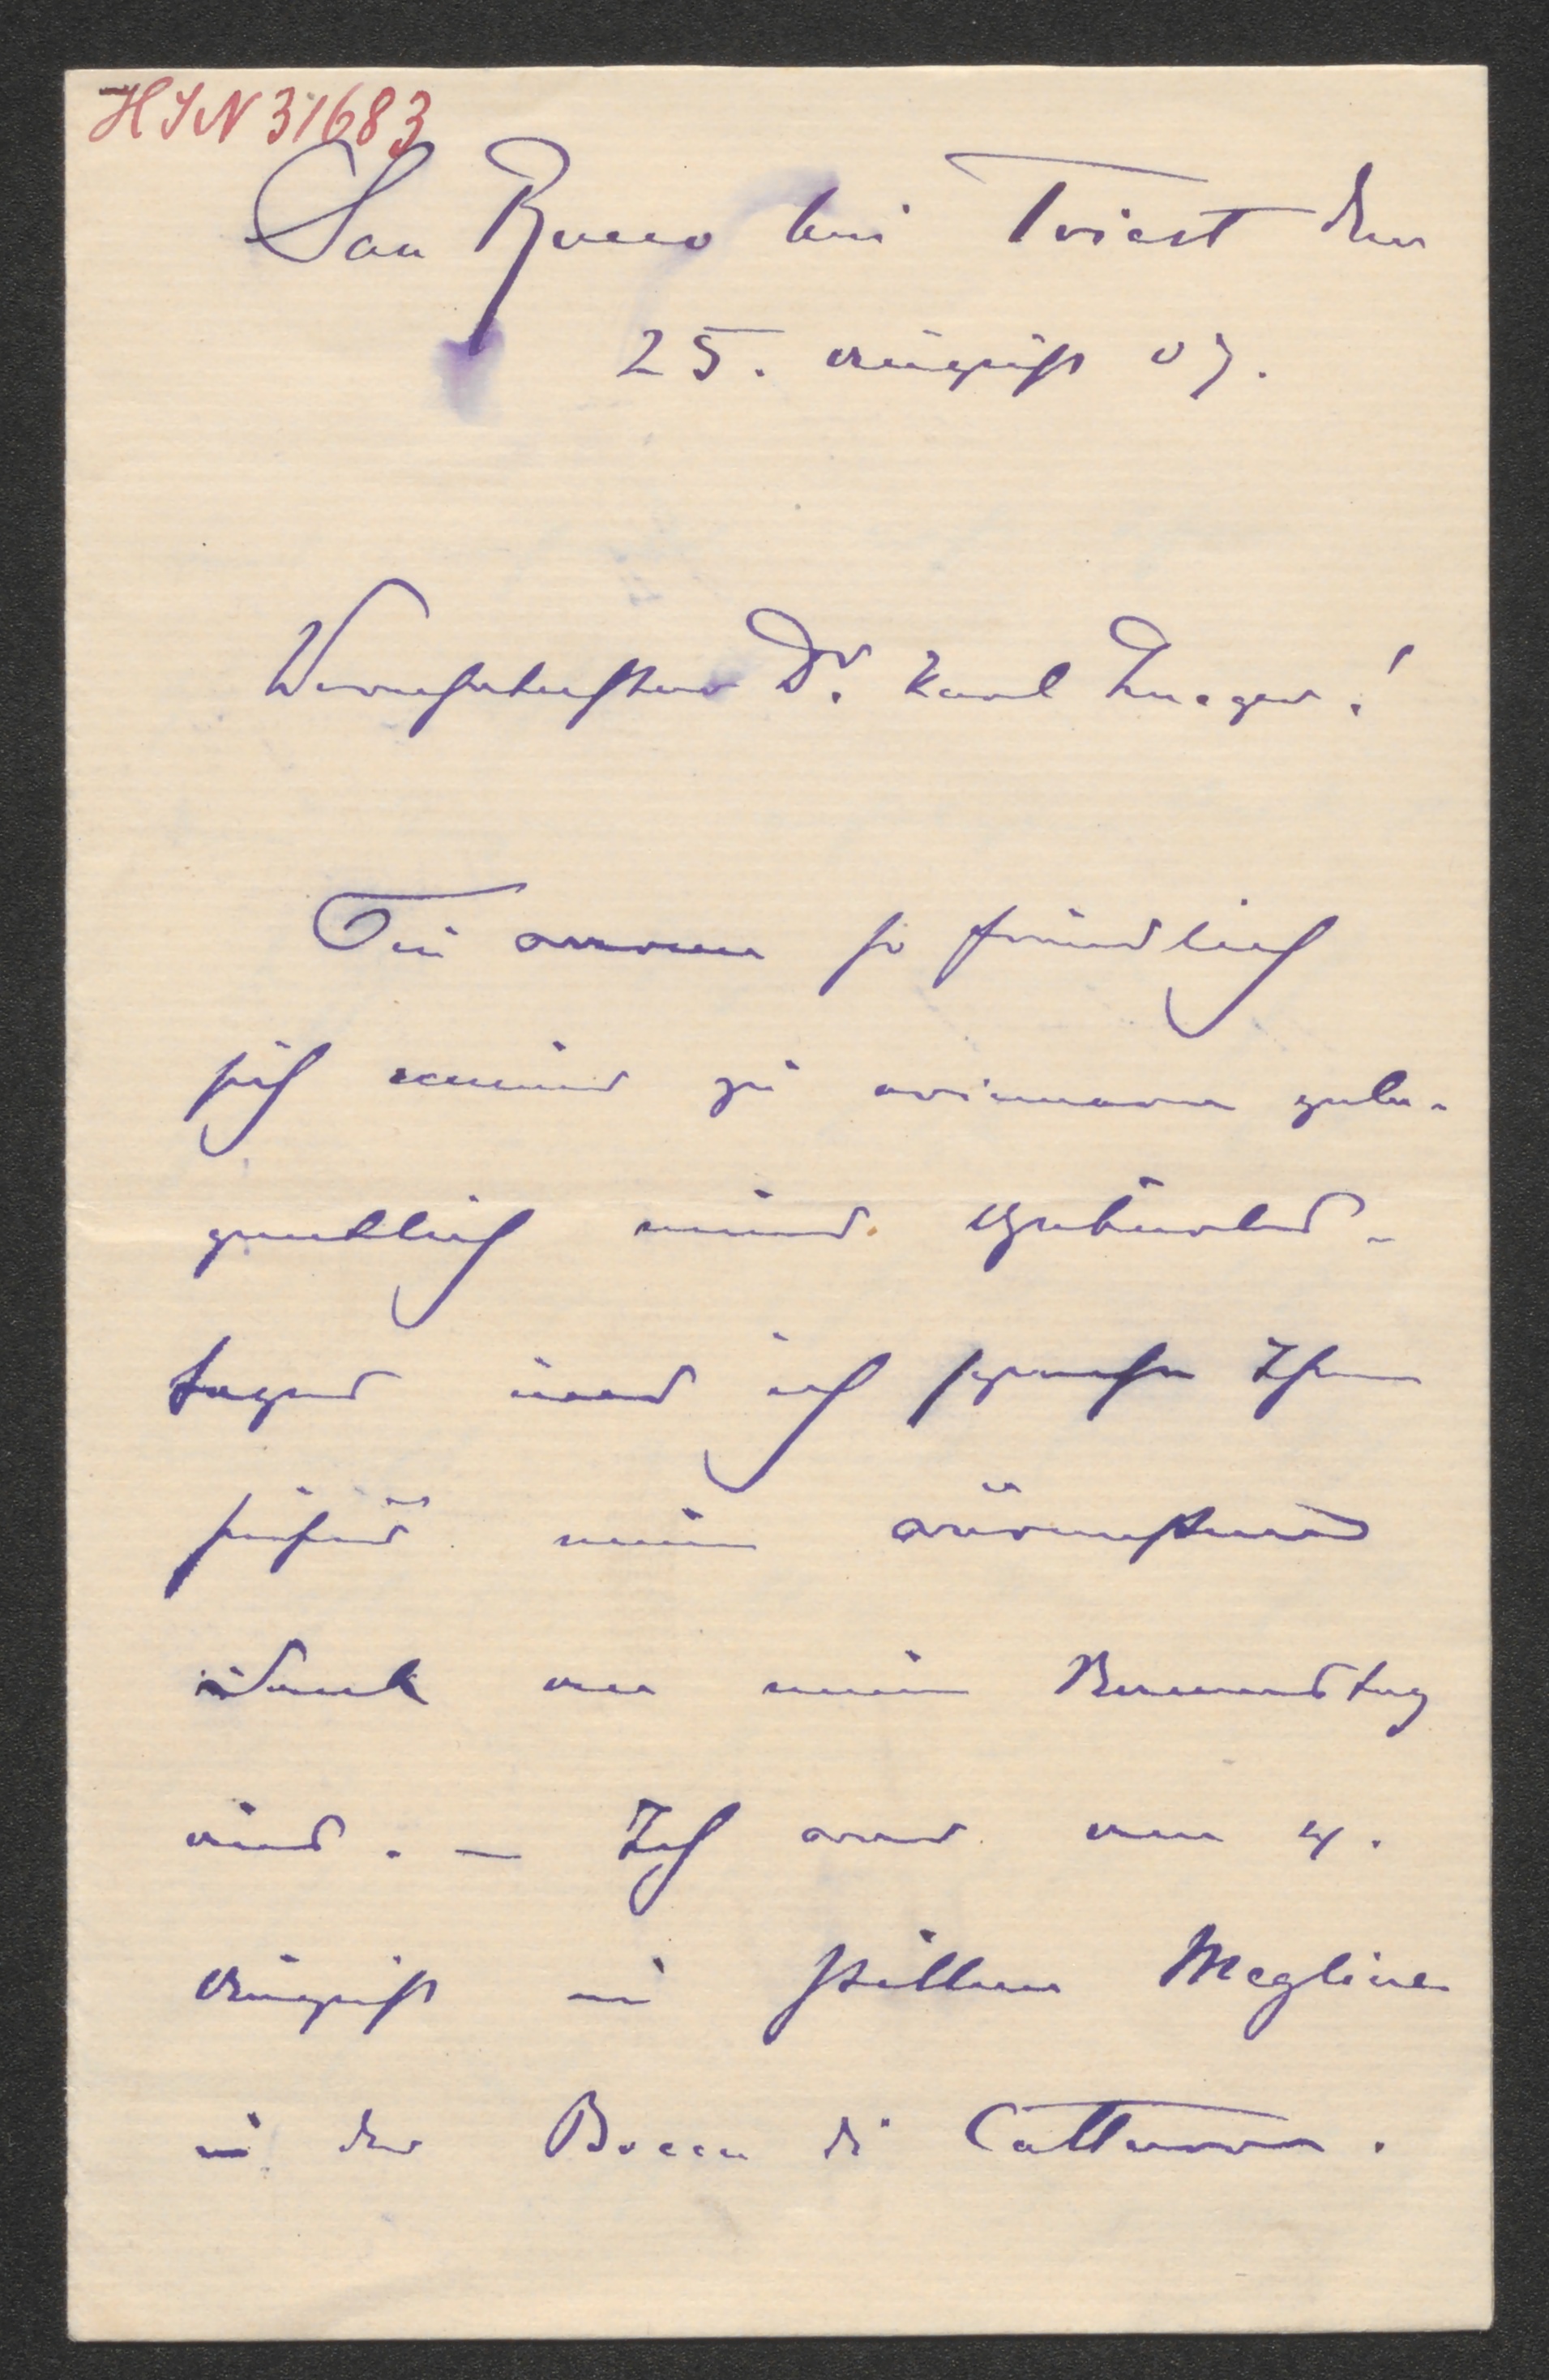 HIN 31683
San Rocco bei Triest den
25. August 07.
Verehrtester Dr. Karl Lueger!
Sie waren so freundlich
sich meiner zu erinnern gele-
gentlich meines Geburts-
tages und ich spreche Ihnen
hiefür meinen wärmsten
Dank an meinem Namenstag
aus. – Ich war am 4.
August im stillen Megline
in der Bocca di Cattaro.